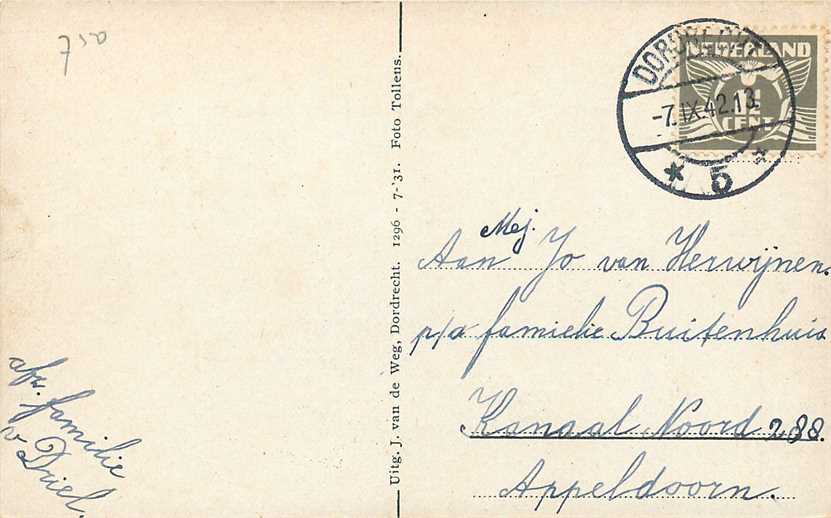 750
afz. familie
v Driel.
Uitg. J. van de Weg, Dordrecht. 1296 - 7-'31. Foto Tollens.
DORDRECHT
-7.IX.42.13
* 5 *
NEDERLAND
1½
CENT
Mej.
Aan Jo van Herwijnen.
p/a famielie Buitenhuis
Kanaal Noord 288.
Appeldoorn.